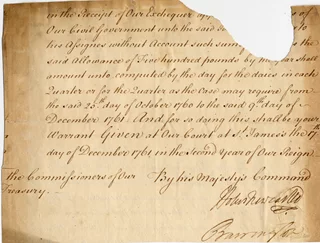 in the Receipt of Our Exchequer app
Our Civil Government unto the said
his Assignes without Account such sum
said Allowance of Five hundred pounds by the Year shall
amount unto computed by the day for the daies in each
Quarter or for the Quarter as the Case may require from
the said 25th day of October 1760 to the said 9th day of
December 1761. And for so doing this shall be your
Warrant Given at Our Court at St. James's the 17th
day of December 1761 in the Second Year of Our Reign
the Commissioners of Our By his Majesty's Command
Treasury.
Barrington